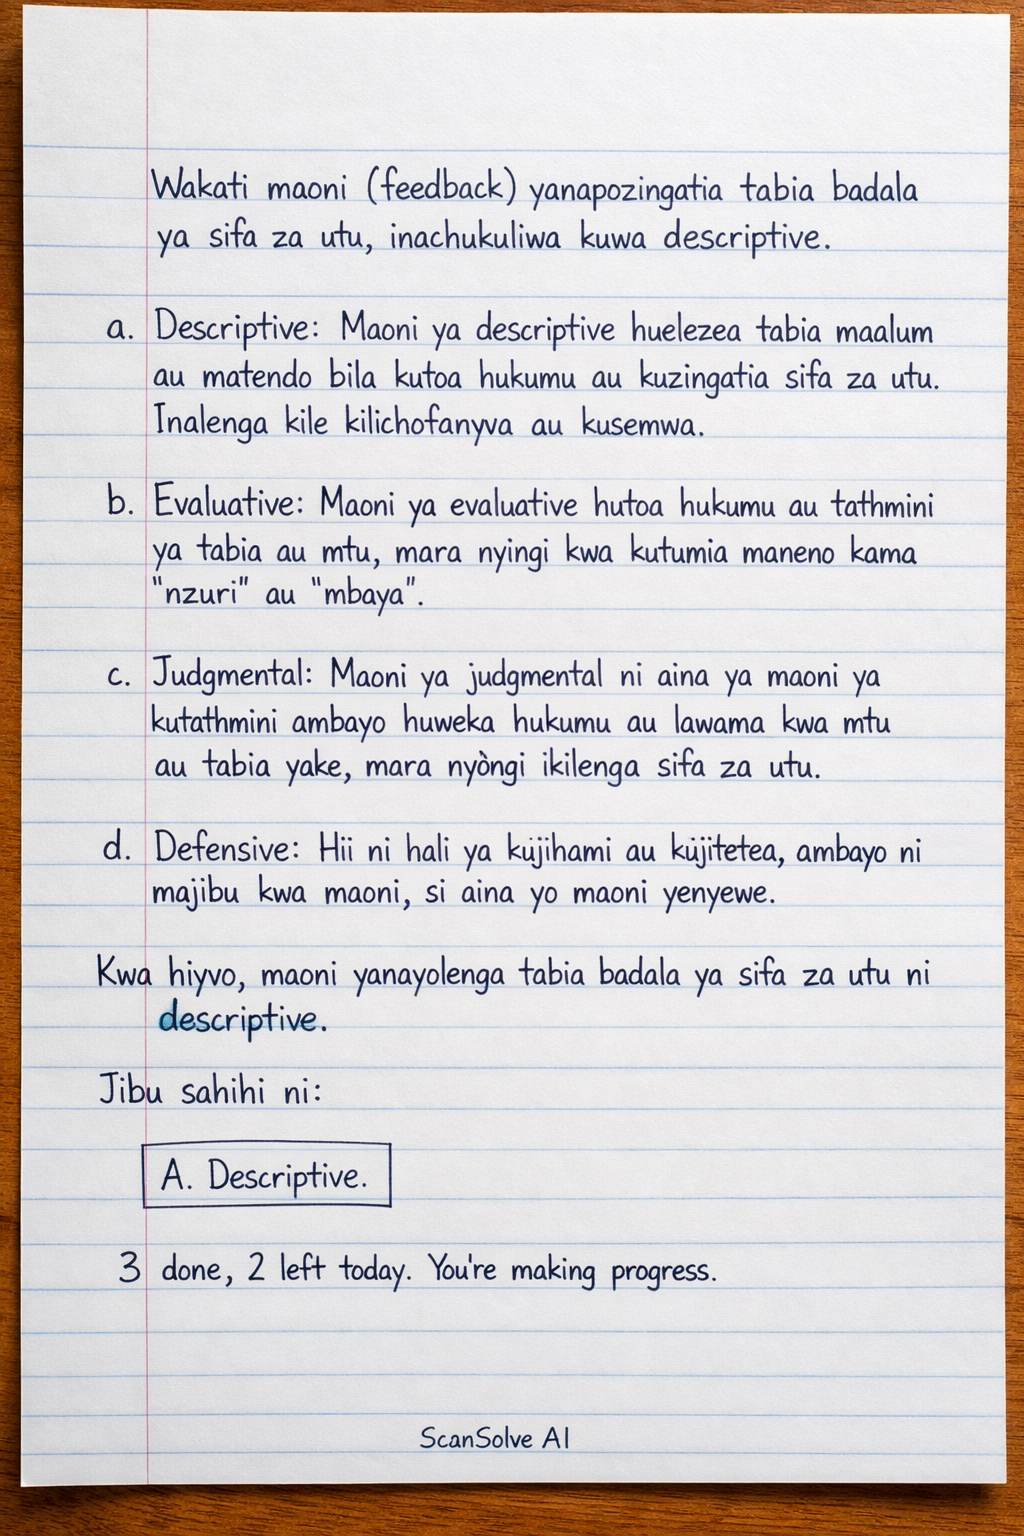 Wakati maoni (feedback) yanapozingatia tabia badala
ya sifa za utu, inachukuliwa kuwa descriptive.
a. Descriptive: Maoni ya descriptive huelezea tabia maalum
au matendo bila kutoa hukumu au kuzingatia sifa za utu.
Inalenga kile kilichofanyva au kusemwa.
b. Evaluative: Maoni ya evaluative hutoa hukumu au tathmini
ya tabia au mtu, mara nyingi kwa kutumia maneno kama
"nzuri" au "mbaya".
c. Judgmental: Maoni ya judgmental ni aina ya maoni ya
kutathmini ambayo huweka hukumu au lawama kwa mtu
au tabia yake, mara nyòngi ikilenga sifa za utu.
d. Defensive: Hii ni hali ya kujihami au kujitetea, ambayo ni
majibu kwa maoni, si aina yo maoni yenyewe.
Kwa hiyvo, maoni yanayolenga tabia badala ya sifa za utu ni
descriptive.
Jibu sahihi ni:
A. Descriptive.
3 done, 2 left today. You're making progress.
ScanSolve AI